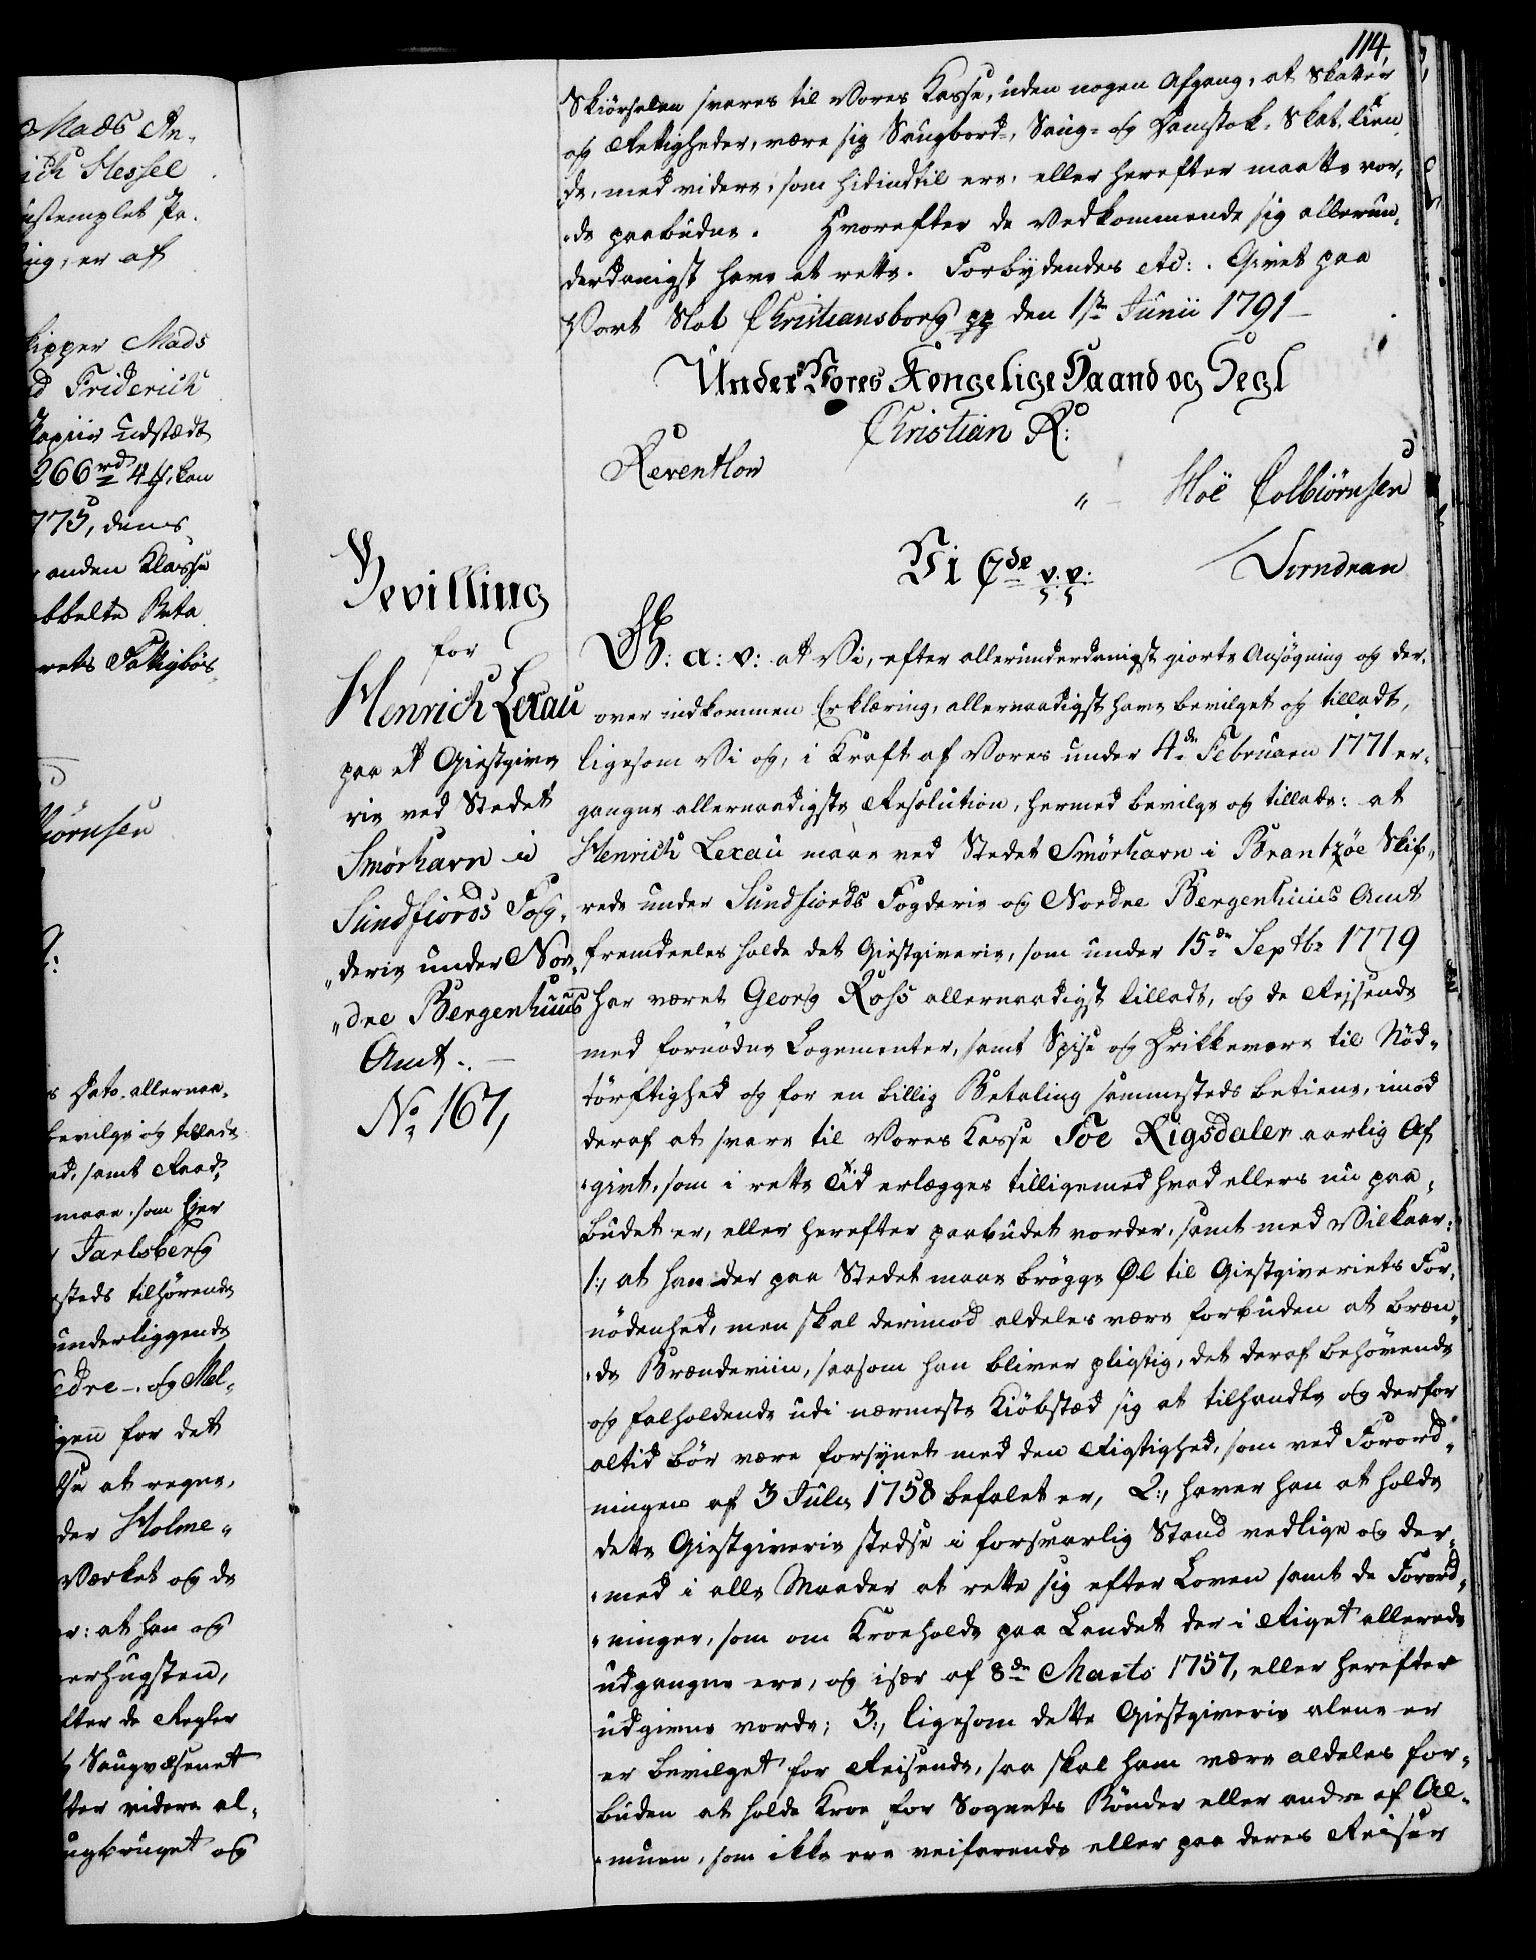 Mads An-
ich Hessel
ustemplet Pa-
ing, er af
kipper Mads
d Friderich
Papiir Udstædt
266 rd 4 ß, kan
775, dens
anden Klasse
obbelte Beta
rets Fattigbös-
iörnsen
s Dato, allernaa-
bevilge og tillade
ed, samt Raad,
maae, som Ejer
Jarlsberg
steds tilhörende
underliggende
edre-, og Mel-
igen for det
lse at regne,
der Holme-
Værket og de
er: at han og
erhugsten,
fter de Regler
Saugvæsenet
fter videre al-
augbruget og
114,
Skiörselen svares til Vores Kasse, uden nogen Afgang, at Skatter
og Rettigheder, være sig Saugbord-, Saug- og Damstok-Skat, Tien-
de, med videre, som hidindtil ere, eller herefter maatte vor-
de paabudne. Hvorefter de Vedkommende sig allerun-
derdanigst have at rette. Forbydendes etc: . Givet paa
Vort Slot Christiansborg pp den 1ste Junii 1791
Under Vores Kongelige Haand og Segl
Christian R:
Reventlow
" Hoë Colbiörnsen
Vi C 7de v: v: Dorndran
Bevilling
for
Henrich Lexau
paa et Giestgive
rie ved Stedet
Smörhavn i
Sundfiords Fog-
„derie under Nor-
„dre Bergenhuus
Amt.
No 167,
G: a: v: at Vi, efter allerunderdanigst giorte Ansögning og der-
over indkommen Erklæring, allernaadigst have bevilget og tilladt,
ligesom Vi og, i Kraft af Vores under 4de Februarii 1771 er-
gangne allernaadigste Resolution, hermed bevilge og tillade: at
Henrich Lexau maae ved Stedet Smörhavn i Brantzöe Skib-
rede under Sundfiords Fogderie og Nordre Bergenhuus Amt
fremdeeles holde det Giestgiverie, som under 15de Septbr 1779
har været Georg Ross allernaadigst tilladt, og de Reisende
med fornödne Logementer, samt Spise og Drikkevare til Nöd-
törftighed og for en billig Betaling sammesteds betiene, imod
deraf at svare til Vores Kasse Toe Rigsdaler aarlig Af
„givt, som i rette Tid erlægges tilligemed hvad ellers nu paa-
budet er, eller herefter paabudet vorder, samt med Vilkaar:
1:, at han der paa Stedet maae brögge Øl til Giestgiveriets For-
nödenhed, men skal derimod aldeles være forbuden at bræn-
„de Brændeviin, saasom han bliver pligtig, det deraf behövende
og falholdende udi nærmeste Kiöbstæd sig at tilhandle og derfor
altid bör være forsynet med den Rigtighed, som ved Forord-
ningen af 3 July 1758 befalet er, 2:, haver han at holde
dette Giestgiverie stedse i forsvarlig Stand vedlige og der-
„med i alle Maader at rette sig efter Loven samt de Forord-
„ninger, som om Kroeholde paa Landet der i Riget allerede
udgangne ere, og især af 8de Marts 1757, eller herefter
udgivne vorde; 3:, ligesom dette Giestgiverie alene er
er bevilget for Reisende, saa skal ham være aldeles for-
buden at holde Kroe for Sognets Bönder eller andre af Al-
„muen, som ikke ere veifarende eller paa deres Reiser